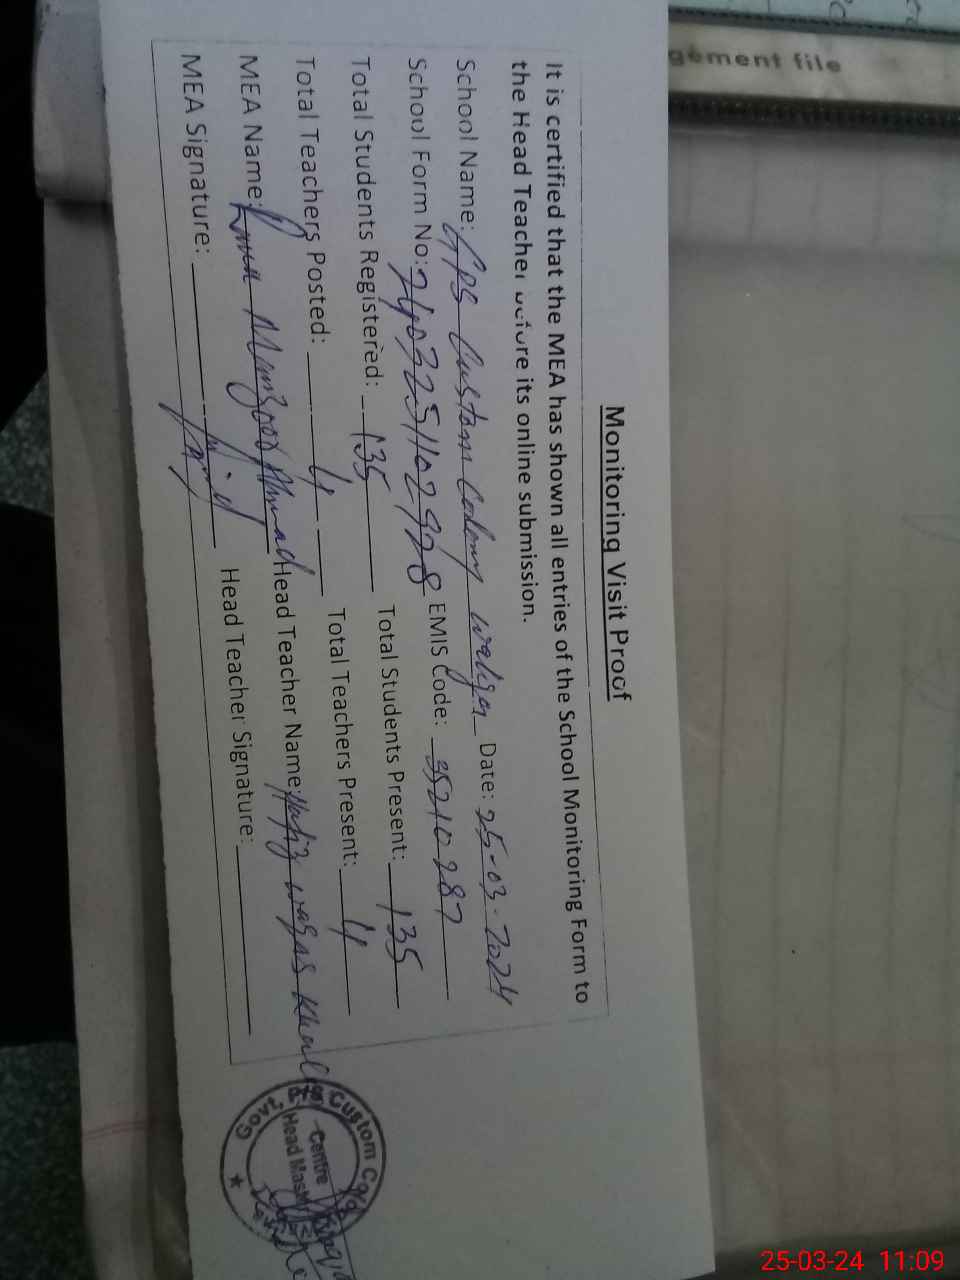 Monitoring Visit Proof
It is certified that the MEA has shown all entries of the School Monitoring Form to
the Head Teacher before its online submission.
School Name: GPS Custom Colony Wahga Date: 25-03-2024
School Form No: EMIS Code: 35210287
Total Students Registered: 135 Total Students Present: 135
Total Teachers Posted: 4 Total Teachers Present: 4
MEA Name: Manzoor Ahmad Head Teacher Name: Hafiz Waqas
MEA Signature: Head Teacher Signature:
Govt. P/S Custom
Centre
Head
gement file
25-03-24 11:09